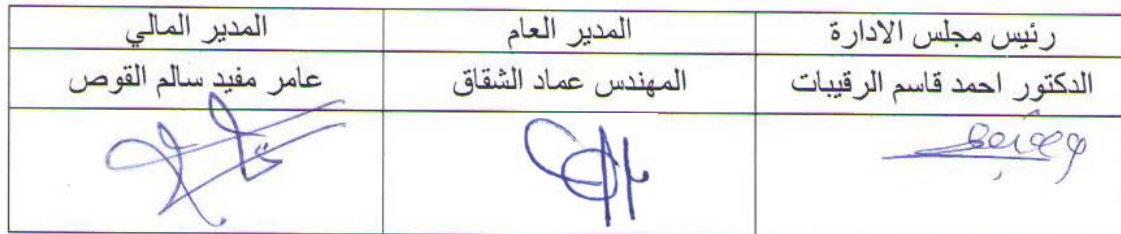 رئيس مجلس الادارة المدير العام المدير المالي
الدكتور احمد قاسم الرقيبات المهندس عماد الشقاق عامر مفيد سالم القوص